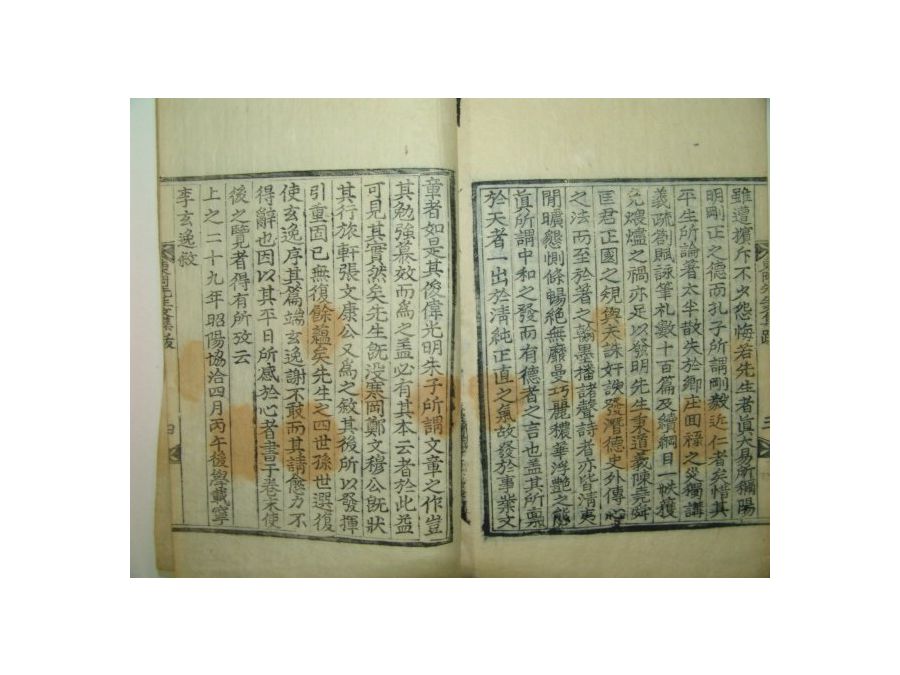 雖遭擯斥不少怨悔若先生者眞大易所稱陽
明剛正之德而孔子所謂剛毅近仁者矣惜其
平生所論著太半散失於鄕庄回祿之災獨講
義疏箚賦詠筆札數十百篇及續綱目一帙獲
免煨燼之禍亦足以發明先生秉道義陳堯舜
匡君正國之規與夫誅奸諛發潛德史外傳心
之法而至於著之翰墨播諸聲詩者亦皆淸夷
閒曠懇惻條暢絶無靡曼巧麗穠華浮艶之態
眞所謂中和之發而有德者之言也盖其所禀
於天者一出於淸純正直之氣故發於事業文
章者如是其俊偉光明朱子所謂文章之作豈
其勉強慕效而爲之盖必有其本云者於此益
可見其實然矣先生旣沒寒岡鄭文穆公旣狀
其行旅軒張文康公又爲之敘其後所以發揮
引重固已無復餘蘊矣先生之四世孫世選復
使玄逸序其篇端玄逸謝不敢而其請愈力不
得辭也因以其平日所感於心者書于卷末使
後之覽者得有所攷云
上之二十九年昭陽協洽四月丙午後學載寧
李玄逸敘
東岡先生文集跋
四